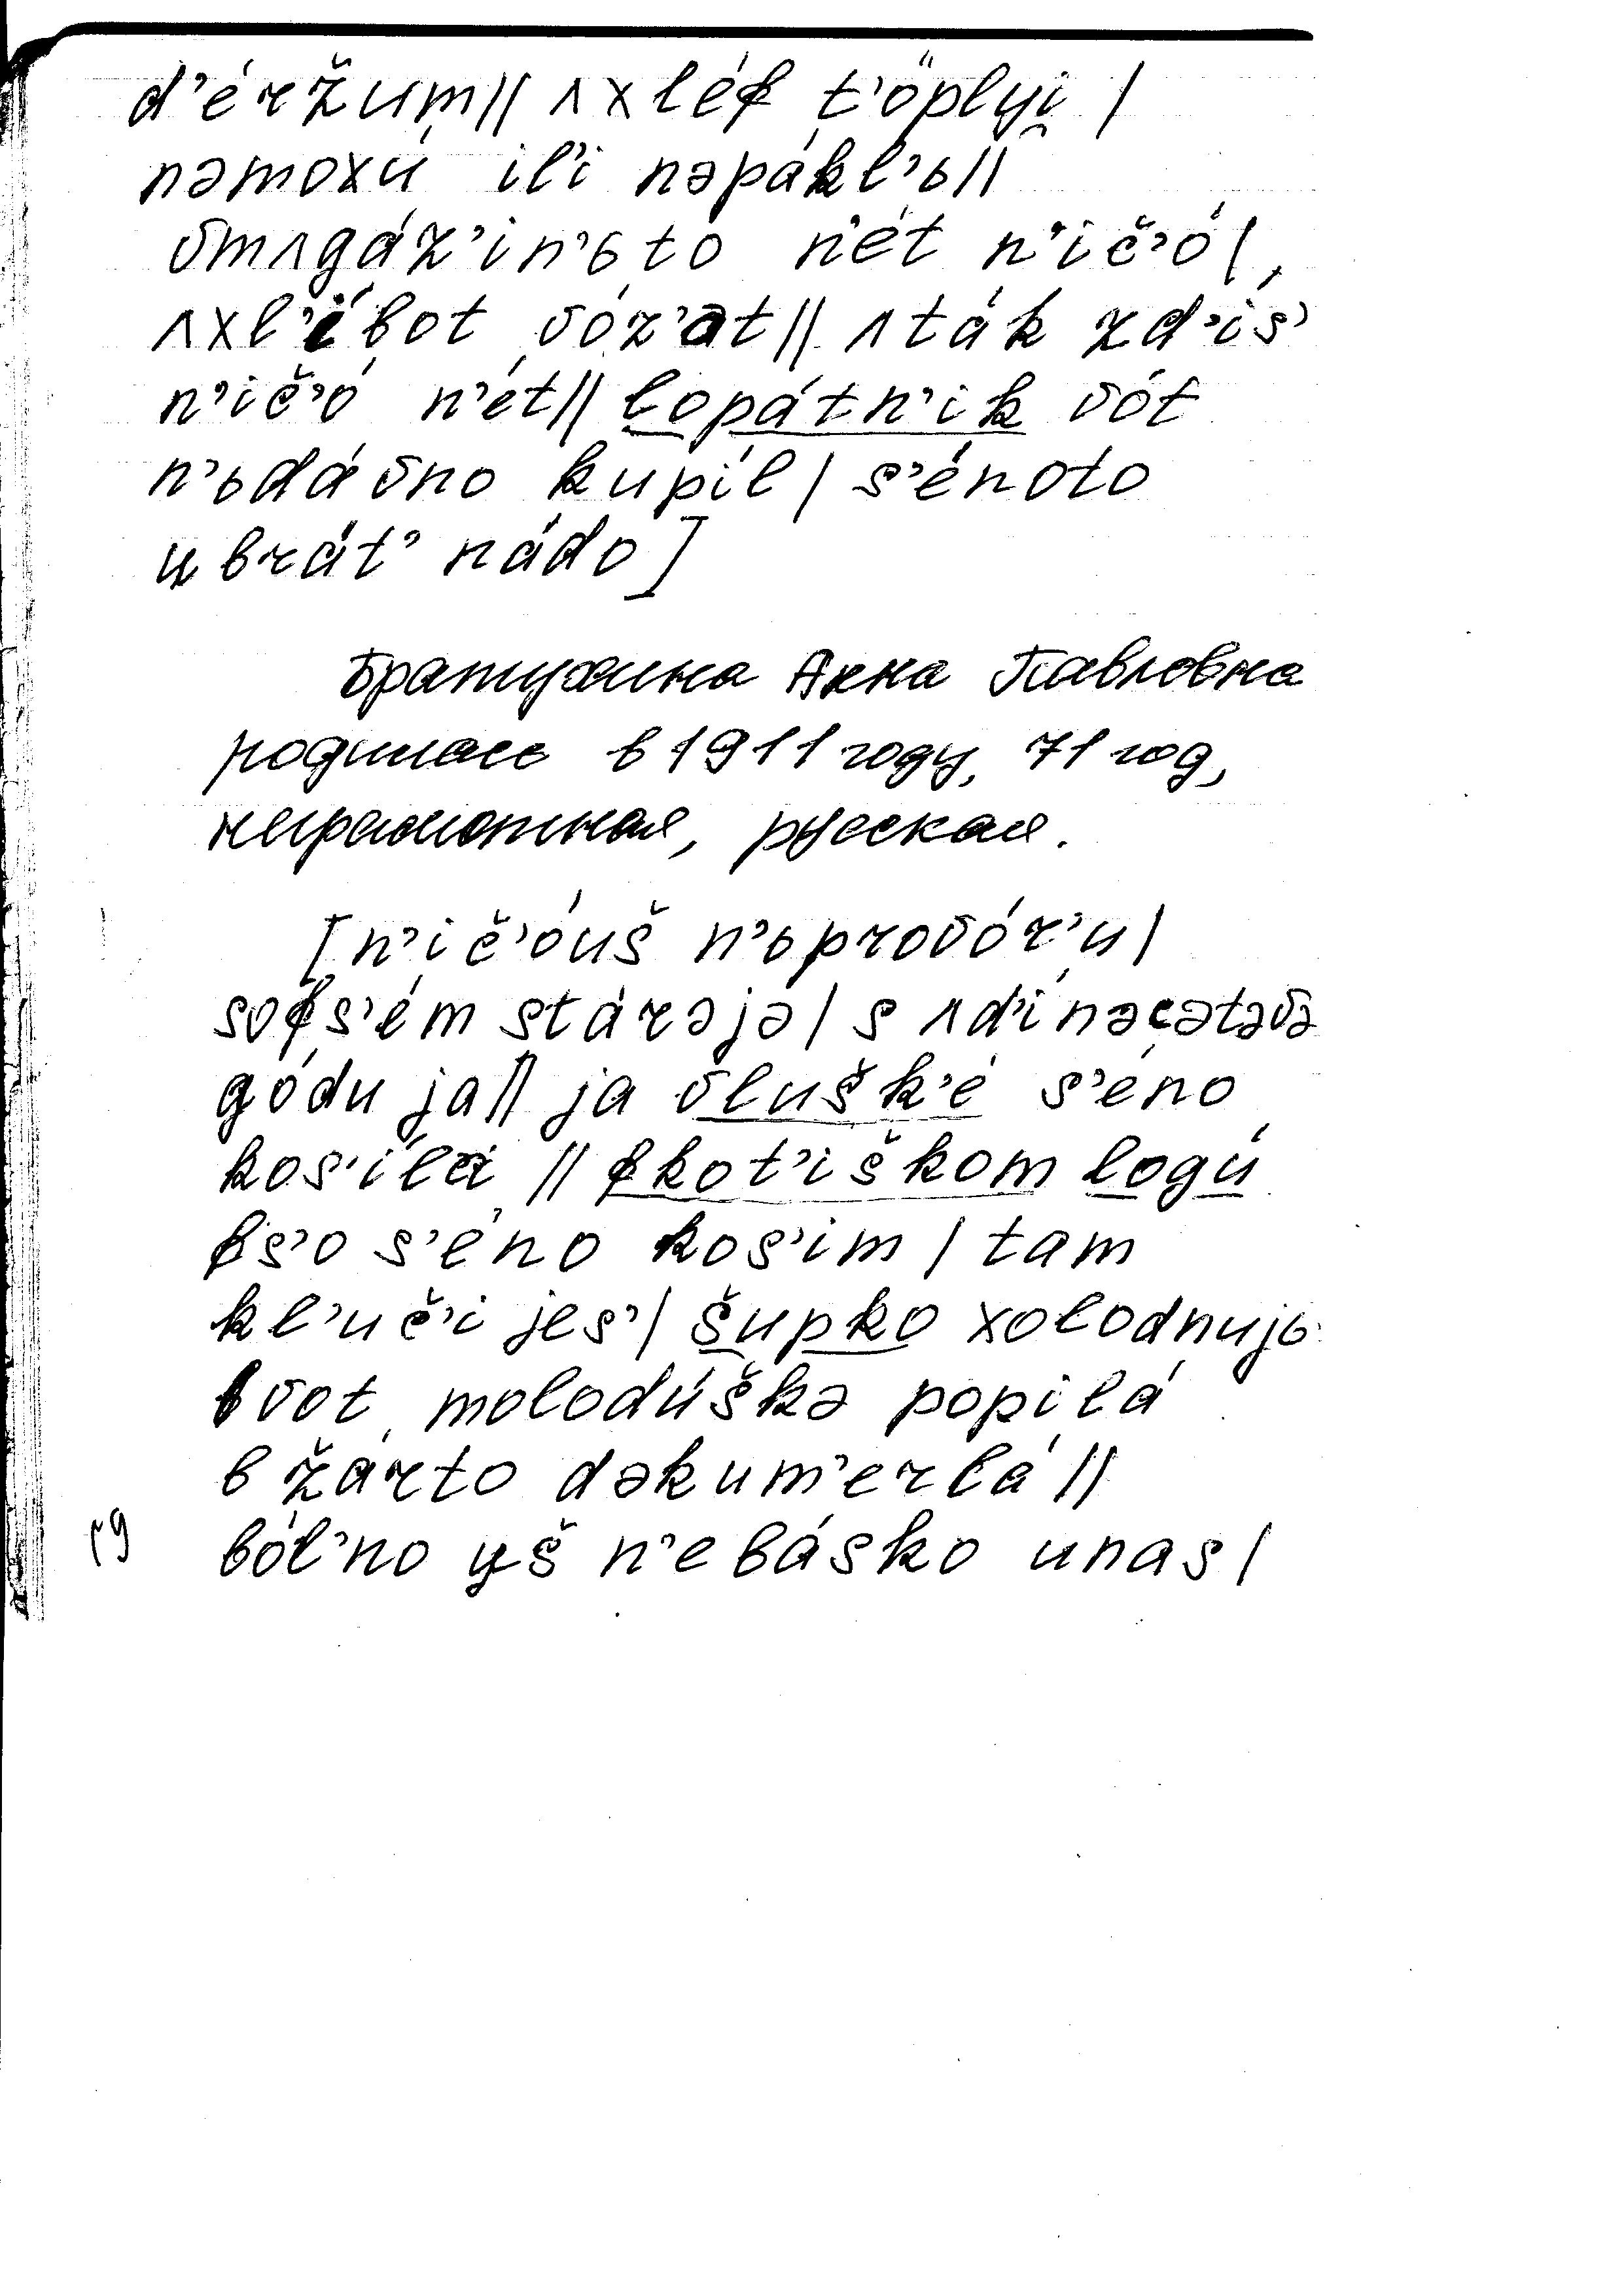 d’éržum|| ʌxléf t’óplyi̯ |
nəmoxú il’i nəpákl’ь||
vmʌgáz’in’ьto n’ét n’ič’ó|,
ʌxl’ébot vóz’at|| ʌták zd’ís’
n’ič’ó n’ét|| lopátn’ik vót
n’ьdávno kupíl | s’énoto
ubrát’ nádo]
Братухина Анна Павловна
родилась в 1911 году, 71 год,
неграмотная, русская.
[n’ič’óuš n’ьprovór’u|
sofs’ém stárəjə| s ʌd’ínəcətəvə
gódu ja|| ja vlušk’é s’éno
kos’íla || fkot’iškom logú
fs’o s’éno kos’im | tam
kl’uč’i jes’| šupko xolodnujь
vot molodúškə popilá
b žárto dəkum’erlá ||
ból’no yš n’ebásko unas |